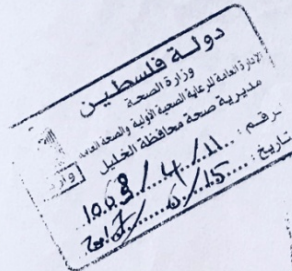 دولة فلسطين
وزارة الصحة
الإدارة العامة للرعاية الصحية الأولية والصحة العامة
مديرية صحة محافظة الخليل
وارد
رقم: 11/4/
تاريخ: 15/